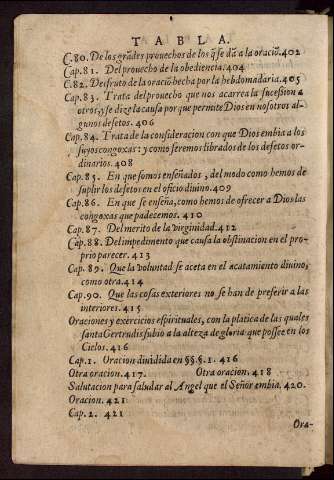 TABLA.
C.80. De los grādes prouechos de los q̄ se dā a la oraciō. 402
Cap. 81. Del prouecho de la obediencia. 404
C.82. Del fruto de la oraciō hecha por la hebdomadaria. 405
Cap. 83. Trata del prouecho que nos acarrea la sucession a
otros, y se dize la causa por que permite Dios en nosotros al-
gunos defetos. 406
Cap. 84. Trata de la consideracion con que Dios embia a los
suyos congoxas: y como seremos librados de los defetos or-
dinarios. 408
Cap. 85. En que somos enseñados, del modo como hemos de
suplir los defetos en el oficio diuino. 409
Cap. 86. En que se enseña, como hemos de ofrecer a Dios las
congoxas que padecemos. 410
Cap. 87. Del merito de la virginidad. 412
Cap. 88. Del impedimento que causa la obstinacion en el pro-
prio parecer. 413
Cap. 89. Que la voluntad se aceta en el acatamiento diuino,
como obra. 414
Cap. 90. Que las cosas exteriores no se han de preferir a las
interiores. 415
Oraciones y exercicios espirituales, con la platica de las quales
santa Gertrudis subio a la alteza de gloria que possee en los
Cielos. 416
Cap. 1. Oracion diuidida en §§§. 1. 416
Otra oracion. 417. Otra oracion. 418
Salutacion para saludar al Angel que el Señor embia. 420.
Oracion. 421
Cap. 2. 421
Ora-